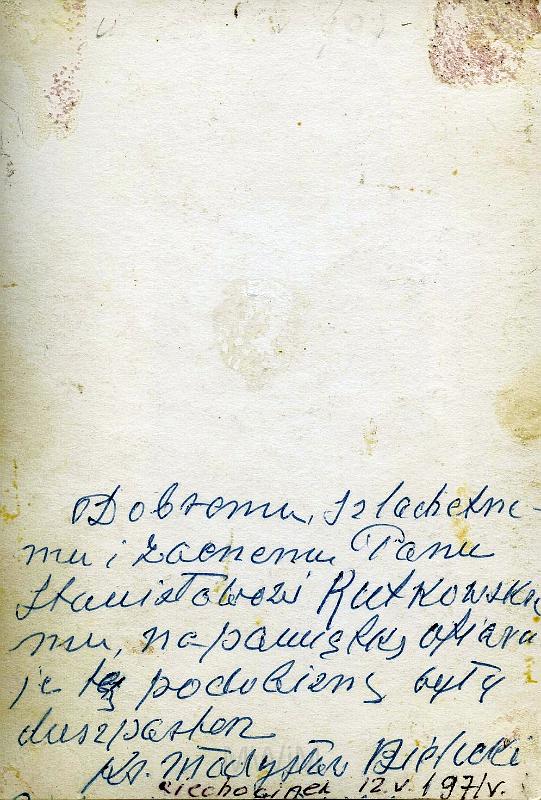 Dobremu, szlachetne-
mu i zacnemu Panu
Stanisławowi Rutkowskie
mu, na pamiątkę ofiaru
je tę podobiznę były
duszpasterz
Ks. Władysław Bielicki
Ciechocinek 12.V.1971r.